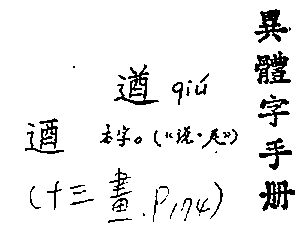 異體字手册
遒 qiú
逎 本字。(《说·辵》)
(十三畫.P174)